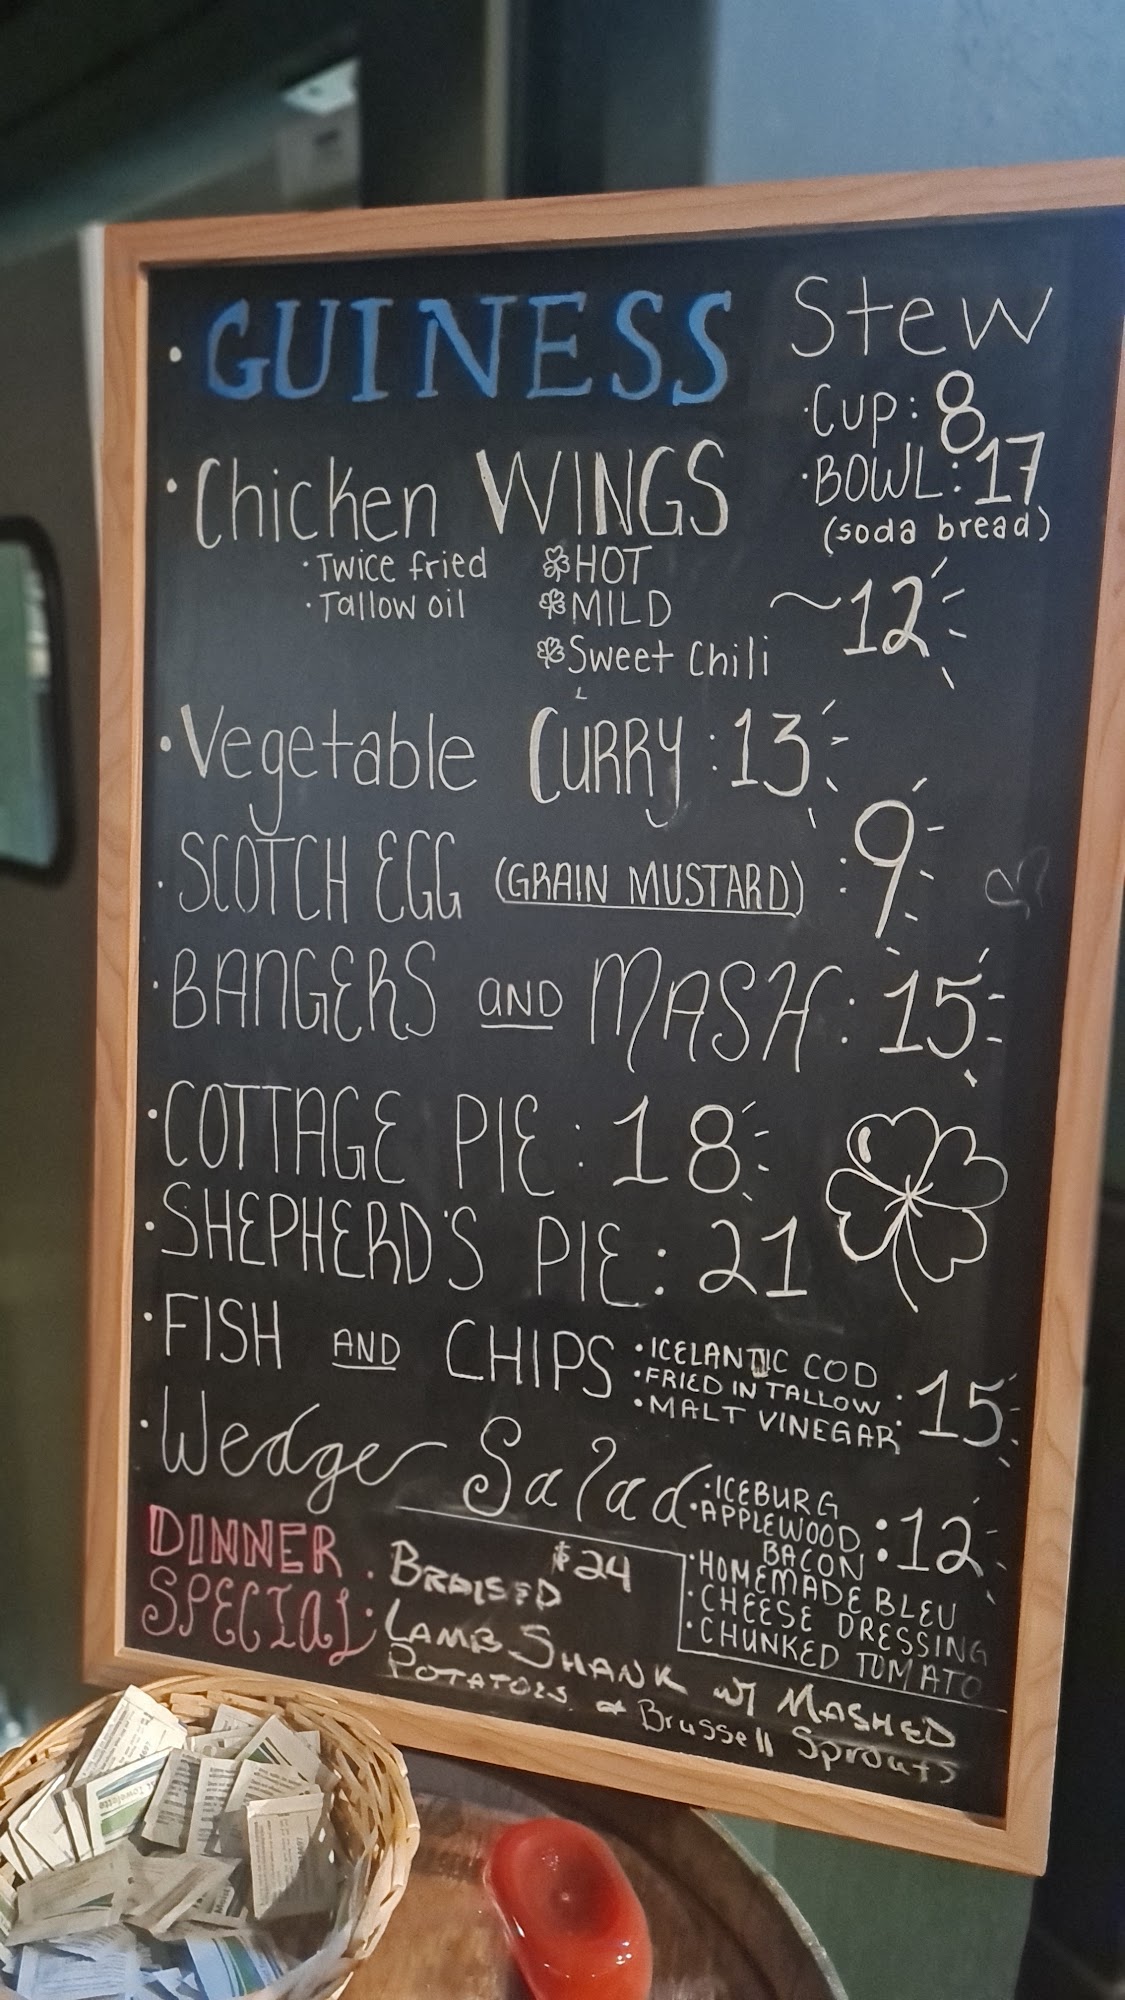 · GUINESS Stew
· Cup: 8
· BOWL: 17
(soda bread)
· Chicken WINGS
· Twice fried
· Tallow oil
HOT
MILD
Sweet Chili
~12
· Vegetable CURRY : 13
· SCOTCH EGG (GRAIN MUSTARD) : 9
· BANGERS AND MASH : 15
· COTTAGE PIE : 18
· SHEPHERD'S PIE : 21
· FISH AND CHIPS
· ICELANTIC COD
· FRIED IN TALLOW
· MALT VINEGAR
: 15
· Wedge Salad
· ICEBURG
· APPLEWOOD
BACON
· HOMEMADE BLEU
· CHEESE DRESSING
· CHUNKED TOMATO
: 12
DINNER
SPECIAL:
· BRAISED $24
LAMB SHANK W/ MASHED
POTATOES & Brussell Sprouts
Towelette